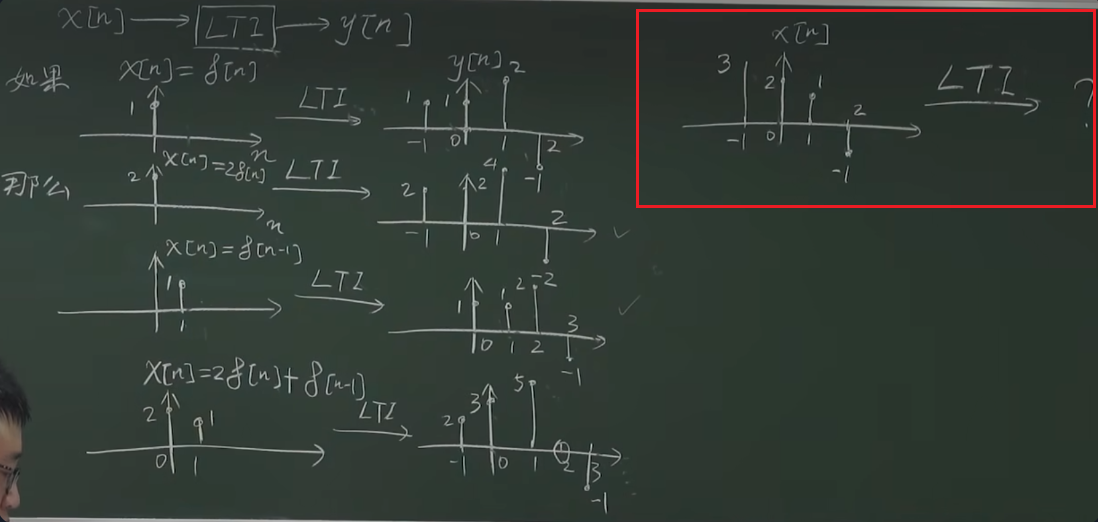 x[n] → LTI → y[n]
如果
x[n] = δ[n]
1
n
LTI
y[n]
1 1 2
-1 0 1 2
-1
那么
x[n] = 2δ[n]
2
n
LTI
2 2 4
-1 0 1 2
-2
x[n] = δ[n-1]
1
1
LTI
1 1 2
0 1 2 3
-1
x[n] = 2δ[n] + δ[n-1]
2 1
0 1
LTI
2 3 5
-1 0 1 2 3
-1
x[n]
3 2 1
-1 0 1 2
-1
LTI
?